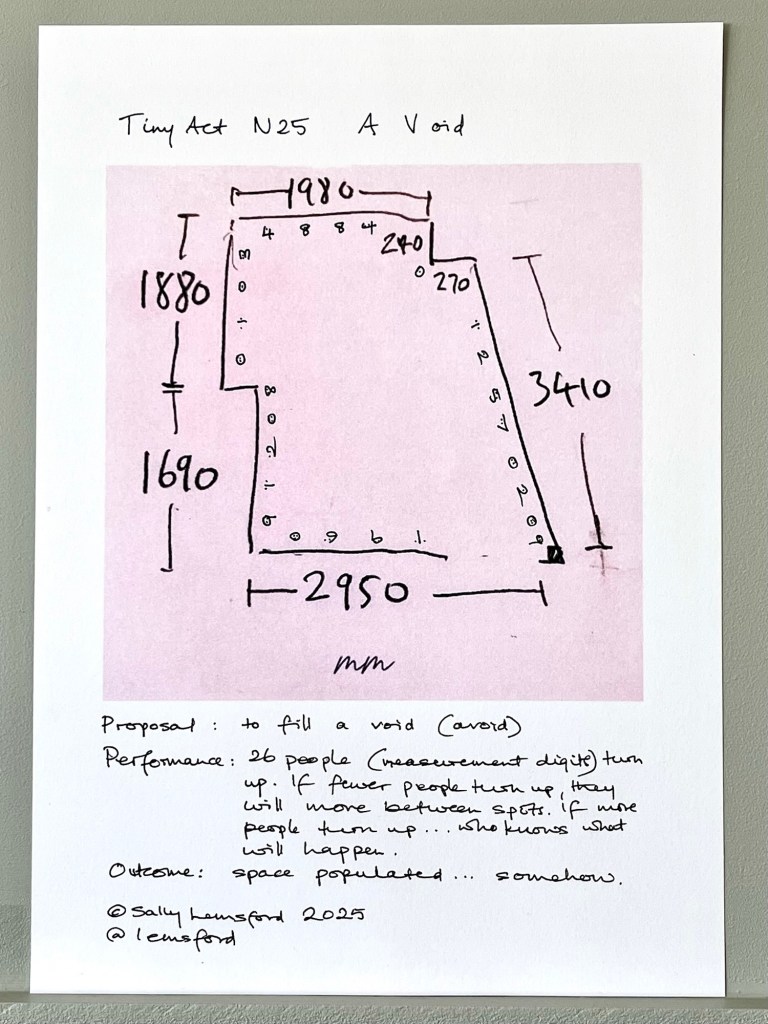 Tiny Act N25 A Void
1980
4 8 8 4
240
0
270
1880
3410
1690
2950
mm
Proposal: to fill a void (avoid)
Performance: 26 people (measurement digits) turn
up. If fewer people turn up, they
will move between spots. If more
people turn up... who knows what
will happen.
Outcome: space populated... somehow.
© Sally Lemsford 2025
@lemsford